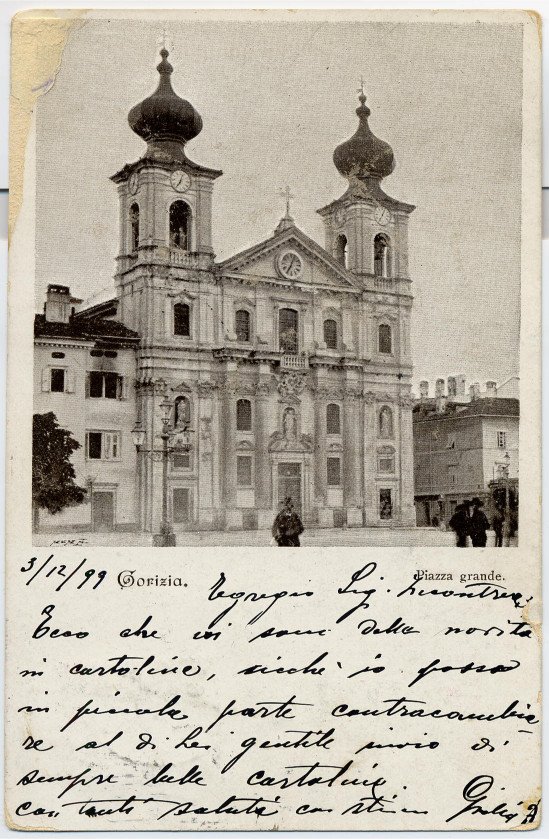 3/12/99 Gorizia. Piazza grande.
Egregio Sig.
Ecco che vi sono della novità
in cartoline, sicchè io posso
in piccola parte contraccambia
re al di Lei gentile invio di
sempre belle cartoline.
con tanti saluti